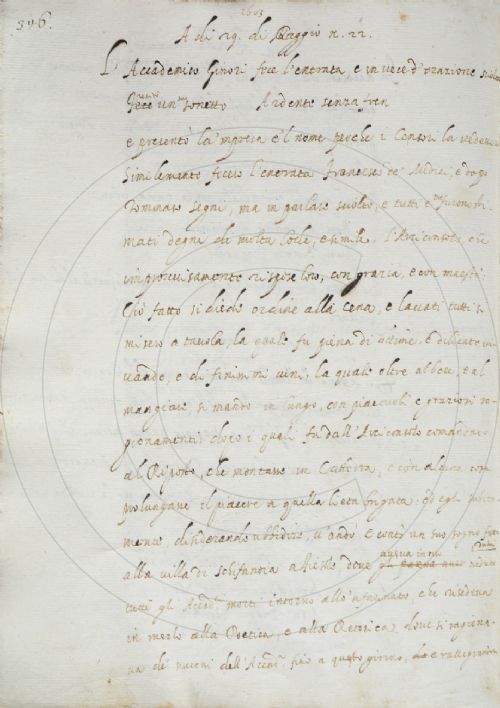 396.
1603
A dì 29. di Maggio n. 22.
L'Accademico Ginori fece l'entrata, e in vece d'orazione
recitò un suo sonetto Ardente senza fren
e presentò la 'mpresa e 'l nome perche i Censori la vedessero
Similmente fecero l'entrata Francesco de' Medici, e dopo
Tommaso Segni, ma in parlare sciolto, e tutti e furono sti
mati degni di molta lode, e stima. l'Arciconsolo, e
improvvisamente rispose loro, con grazia, e con maestà
Ciò fatto si diede ordine alla cena, e lavati tutti si
misero a tavola, la quale fu piena di ottime, e dilicate vi
vande, e di finissimi vini, la quale oltre al bere, e al
mangiare si mandò in lungo, con piacevoli e graziosi ra
gionamenti dopo i quali fu dall'Arciconsolo comandato
al Riposto, che montasse in Cattedra, e con alcuna cosa
prolungare il piacere a quella lieta brigata: ed egli
mente, desiderando ubbidire, v'andò e contò un suo sogno
alla villa di Schifanoia dove
tutti gli Accad. morti intorno allo 'nfarinato, che risedeva
in mezzo alla Poetica, e alla Retorica, dove si ragiona
va de' successi dell'Accad. fino a questo giorno, e